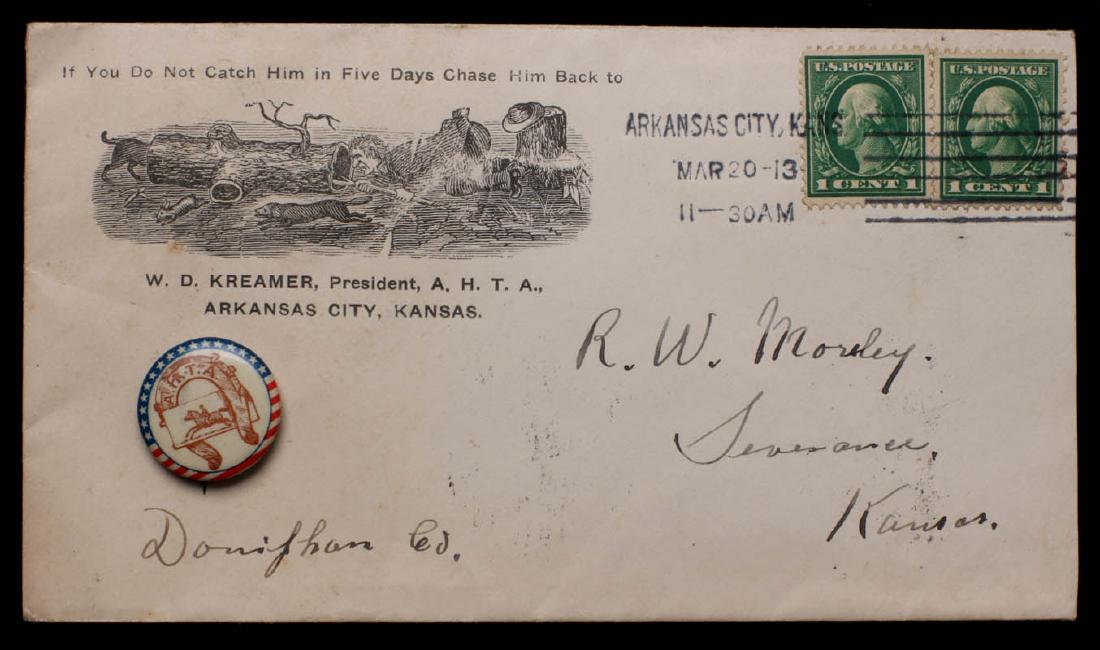 If You Do Not Catch Him in Five Days Chase Him Back to
W. D. KREAMER, President, A. H. T. A.,
ARKANSAS CITY, KANSAS.
ARKANSAS CITY, KANS
MAR 20-13
11-30AM
U.S. POSTAGE
1 CENT 1
U.S. POSTAGE
1 CENT 1
A.H.T.A.
R. W. Morley.
Severance,
Kansas.
Doniphan Co.